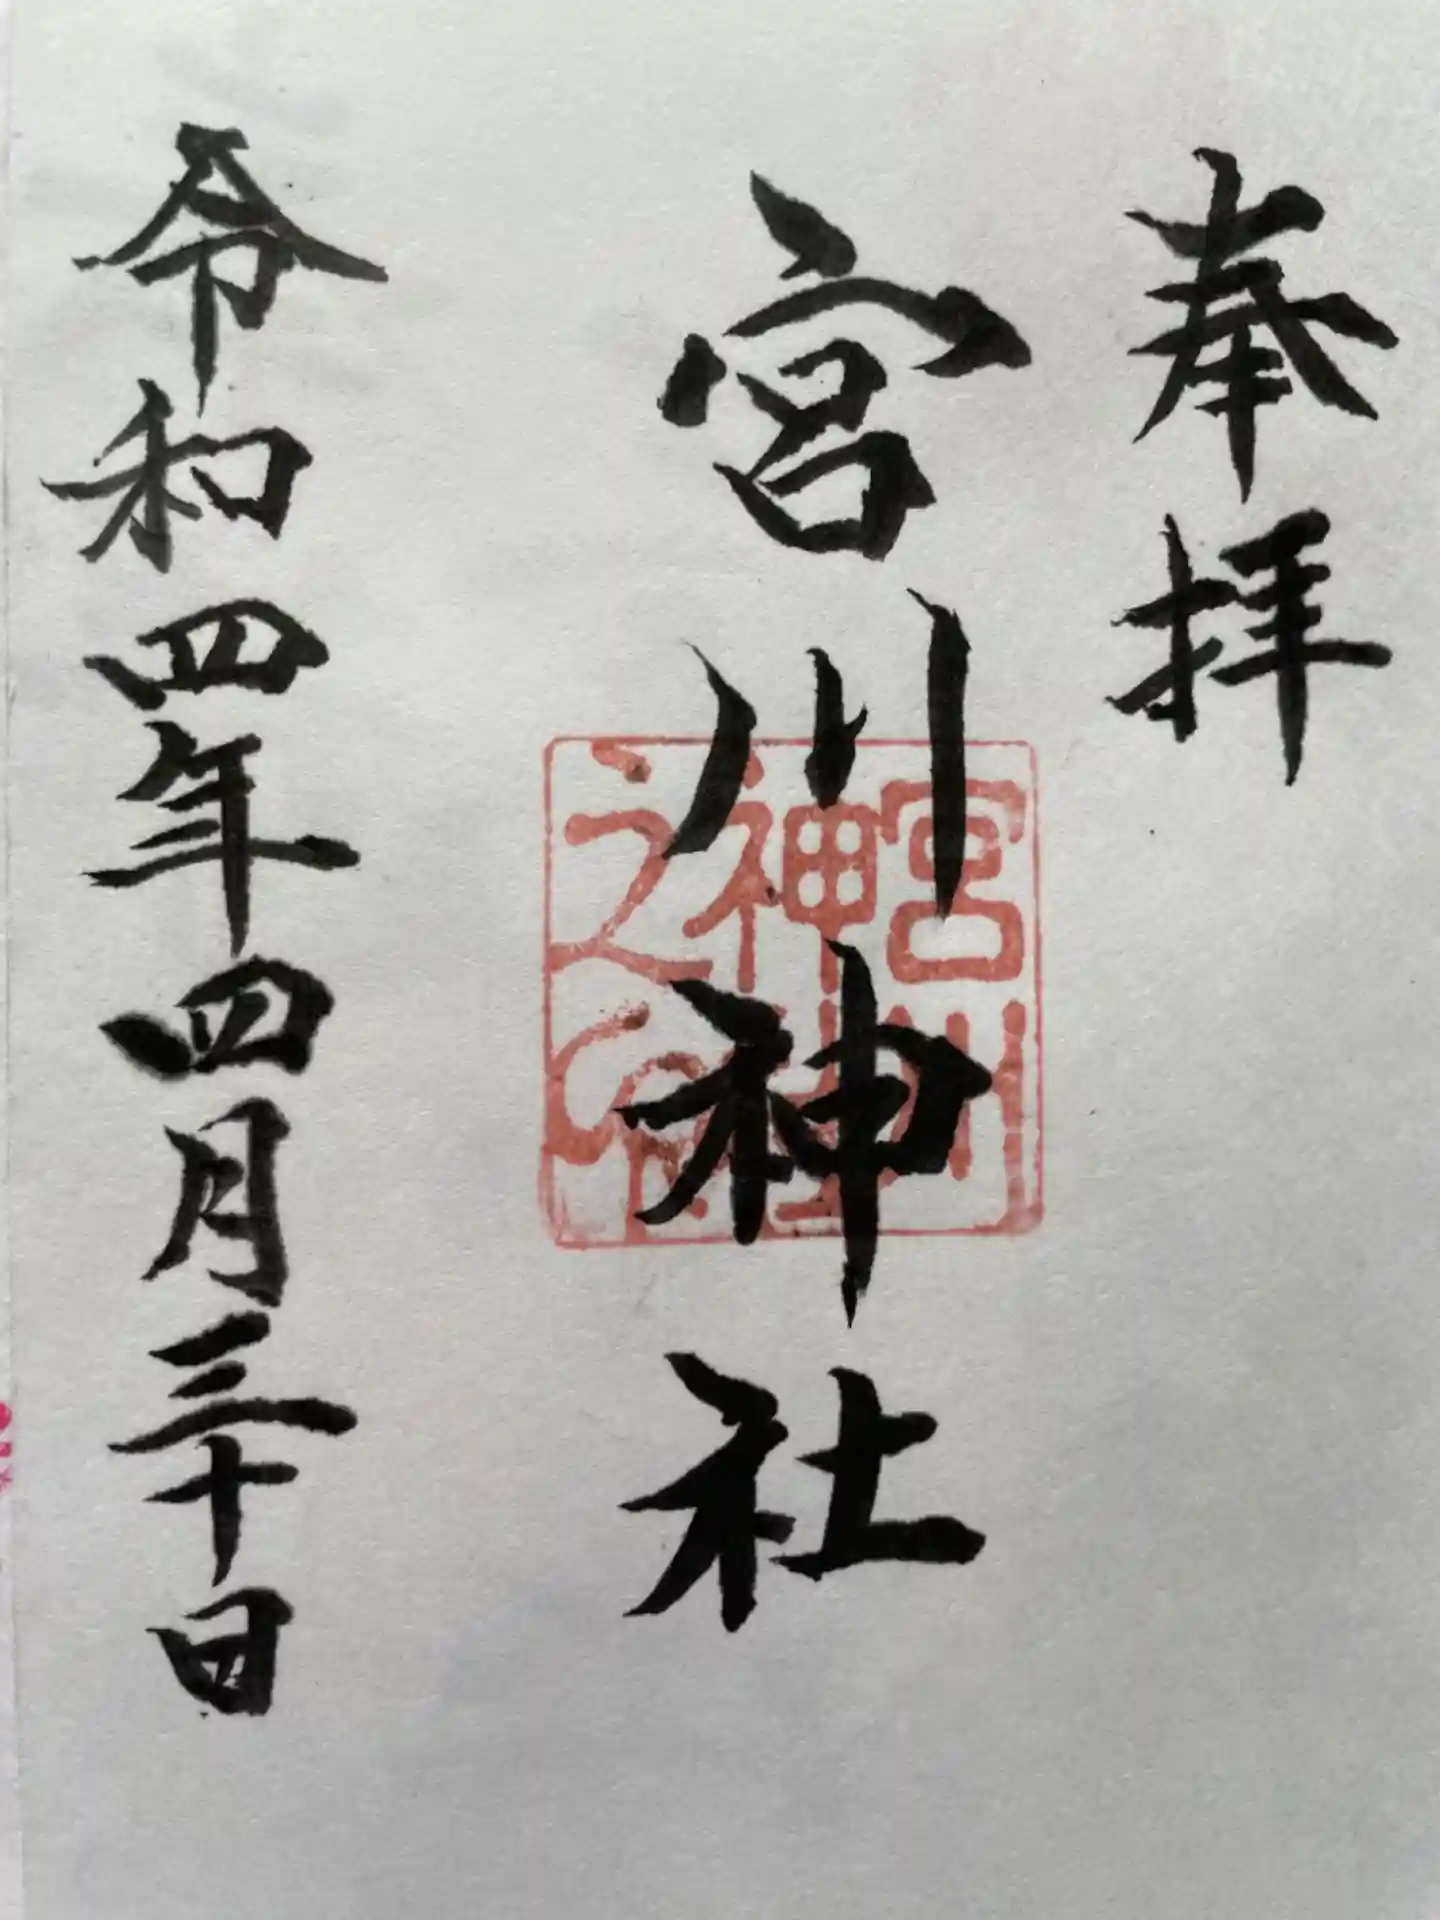 奉拝
宮川神社
宮川神社之印
令和四年四月三十日